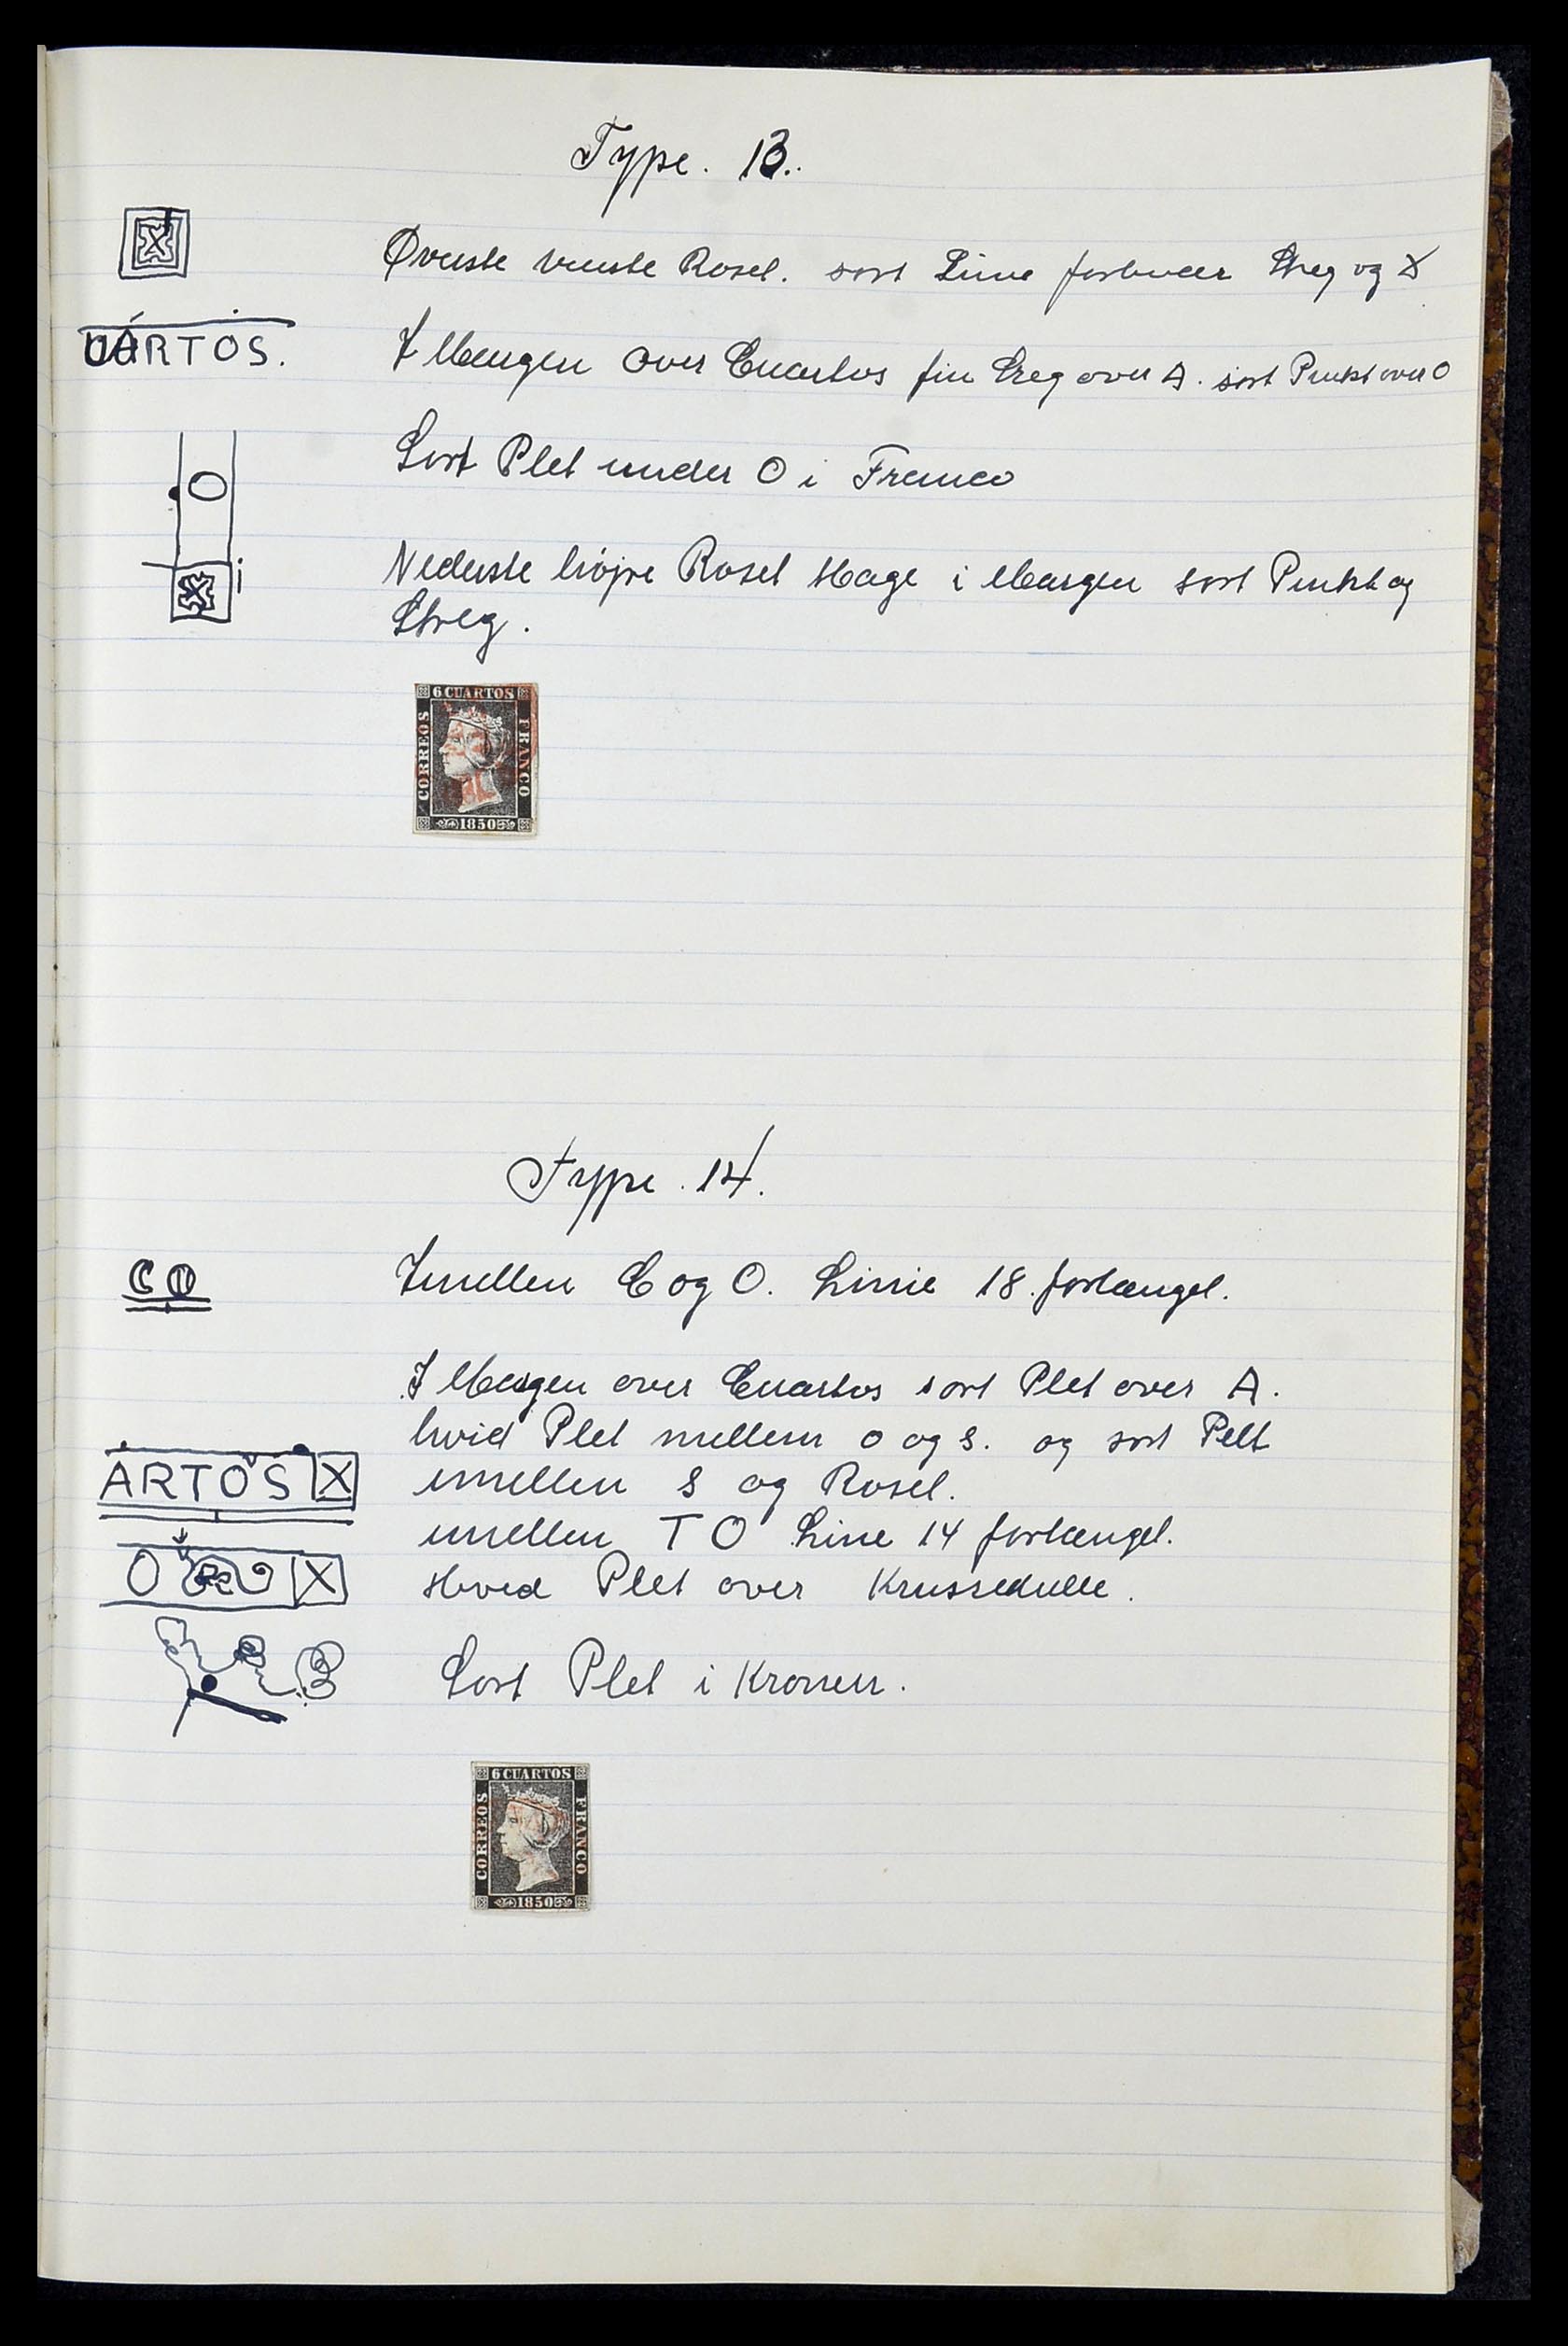 Type. 13.
Øverste venste Roset. sort Linie forbinder Streg og X
UARTOS.
I Margen over Cuartos fin Streg over A. sort Punkt over O
O
Sort Plet under O i Franco
Nederste højre Roset Hage i Margen sort Punkt og
Streg.
6 CUARTOS
CORREOS
FRANCO
1850
Type. 14.
CO
Imellem C og O. Linie 18. forlænget.
I Margen over Cuartos sort Plet over A.
hvid Plet mellem o og s. og sort Pelt
ARTOS X
imellem S og Roset.
imellem T O Linie 14 forlænget.
O X
Hvid Plet over Krussedulle.
Sort Plet i Kronen.
6 CUARTOS
CORREOS
FRANCO
1850